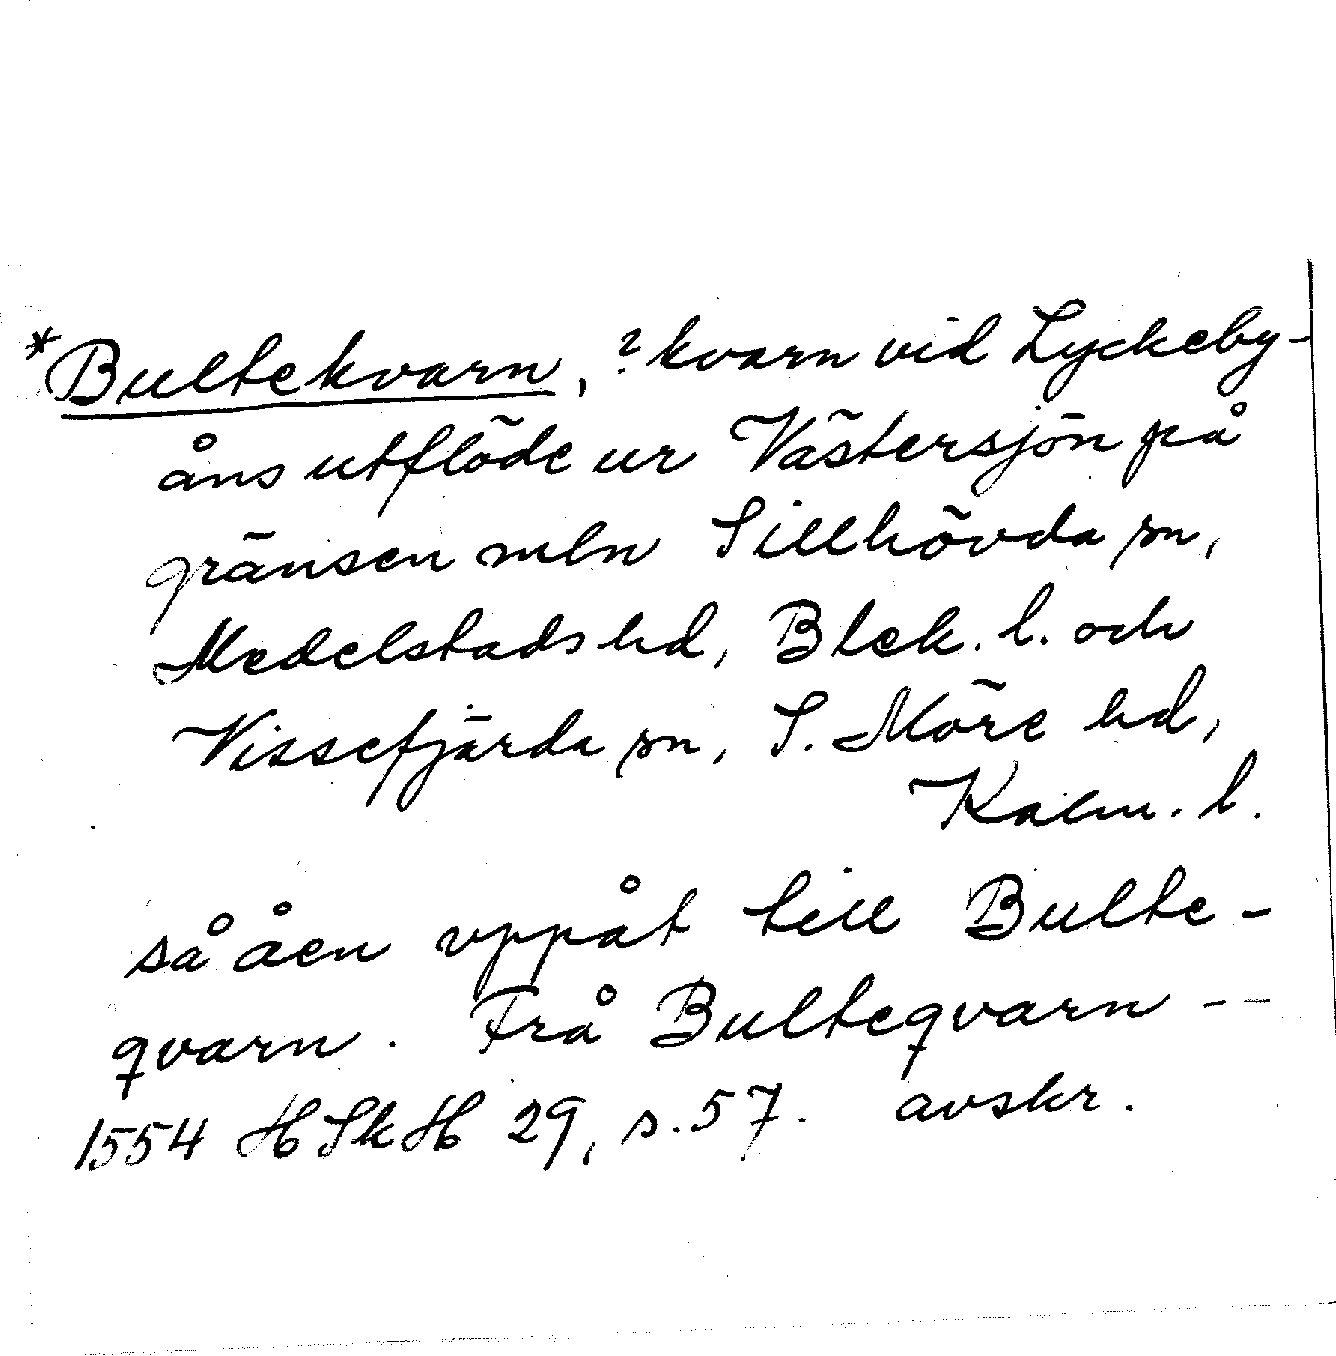 *Bultekvarn, ? kvarn vid Lyckeby-
åns utflöde ur Västersjön på
gränsen mln Sillhövda sn,
Medelstads hd, Blek. l. och
Vissefjärda sn, S. Möre hd,
Kalm. l.
så åen vppåt till Bulte-
qvarn. Frå Bulteqvarn --
1554 HSkH 29, s. 57. avskr.